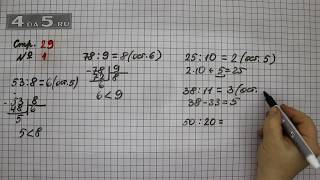 4DA5.RU
Стр. 29
№ 1
53:8=6(ост.5)
-53|8
48|6
5
5<8
78:9=8(ост.6)
-78|9
72|8
6
6<9
25:10=2(ост.5)
2·10+5=25
38:11=3(ост.
38-33=5
50:20=